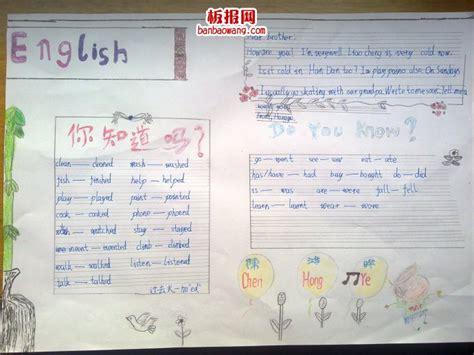 板报网
banbaowang.com
English
Dear brother:
How are you! I'm very well. Liao cheng is very cold now.
Is it cold in Han Dan too? I play piano also. On Sundays
I usually go skating with our grandpa. Write to me soon. Tell me
你知道吗?
clean — cleaned wash — washed
fish — fished help — helped
play — played paint — painted
cook — cooked phone — phoned
watched stay — stayed
invented climb — climbed
walk — walked listen — listened
talk — talked
过去式 — 加"ed"
Do You Know?
go — went see — saw eat — ate
has/have — had buy — bought do — did
is — was are — were fall — fell
learn — learnt wear — wore
陈
Chen Hong Ye